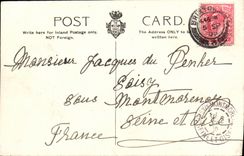 POST CARD.
Write here for Inland Postage only, NOT Foreign.
The Address ONLY to be written here.
Monsieur Jacques du Penher
Soisy
Sous Montmorency
Seine et Oise
France